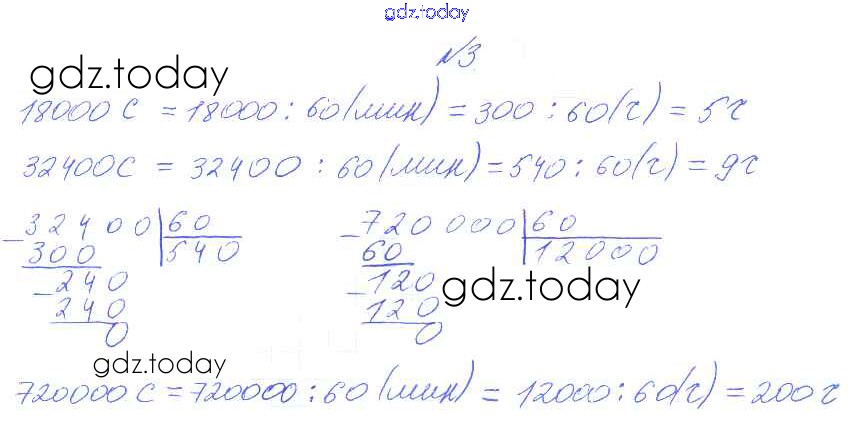 gdz.today
№3
gdz.today
18000 с = 18000 : 60 (мин) = 300 : 60 (ч) = 5 ч
32400 с = 32400 : 60 (мин) = 540 : 60 (ч) = 9 ч
– 32400 | 60
300 | 540
– 240
240
0
– 720000 | 60
60 | 12000
– 120
120
0
gdz.today
gdz.today
720000 с = 720000 : 60 (мин) = 12000 : 60 (ч) = 200 ч